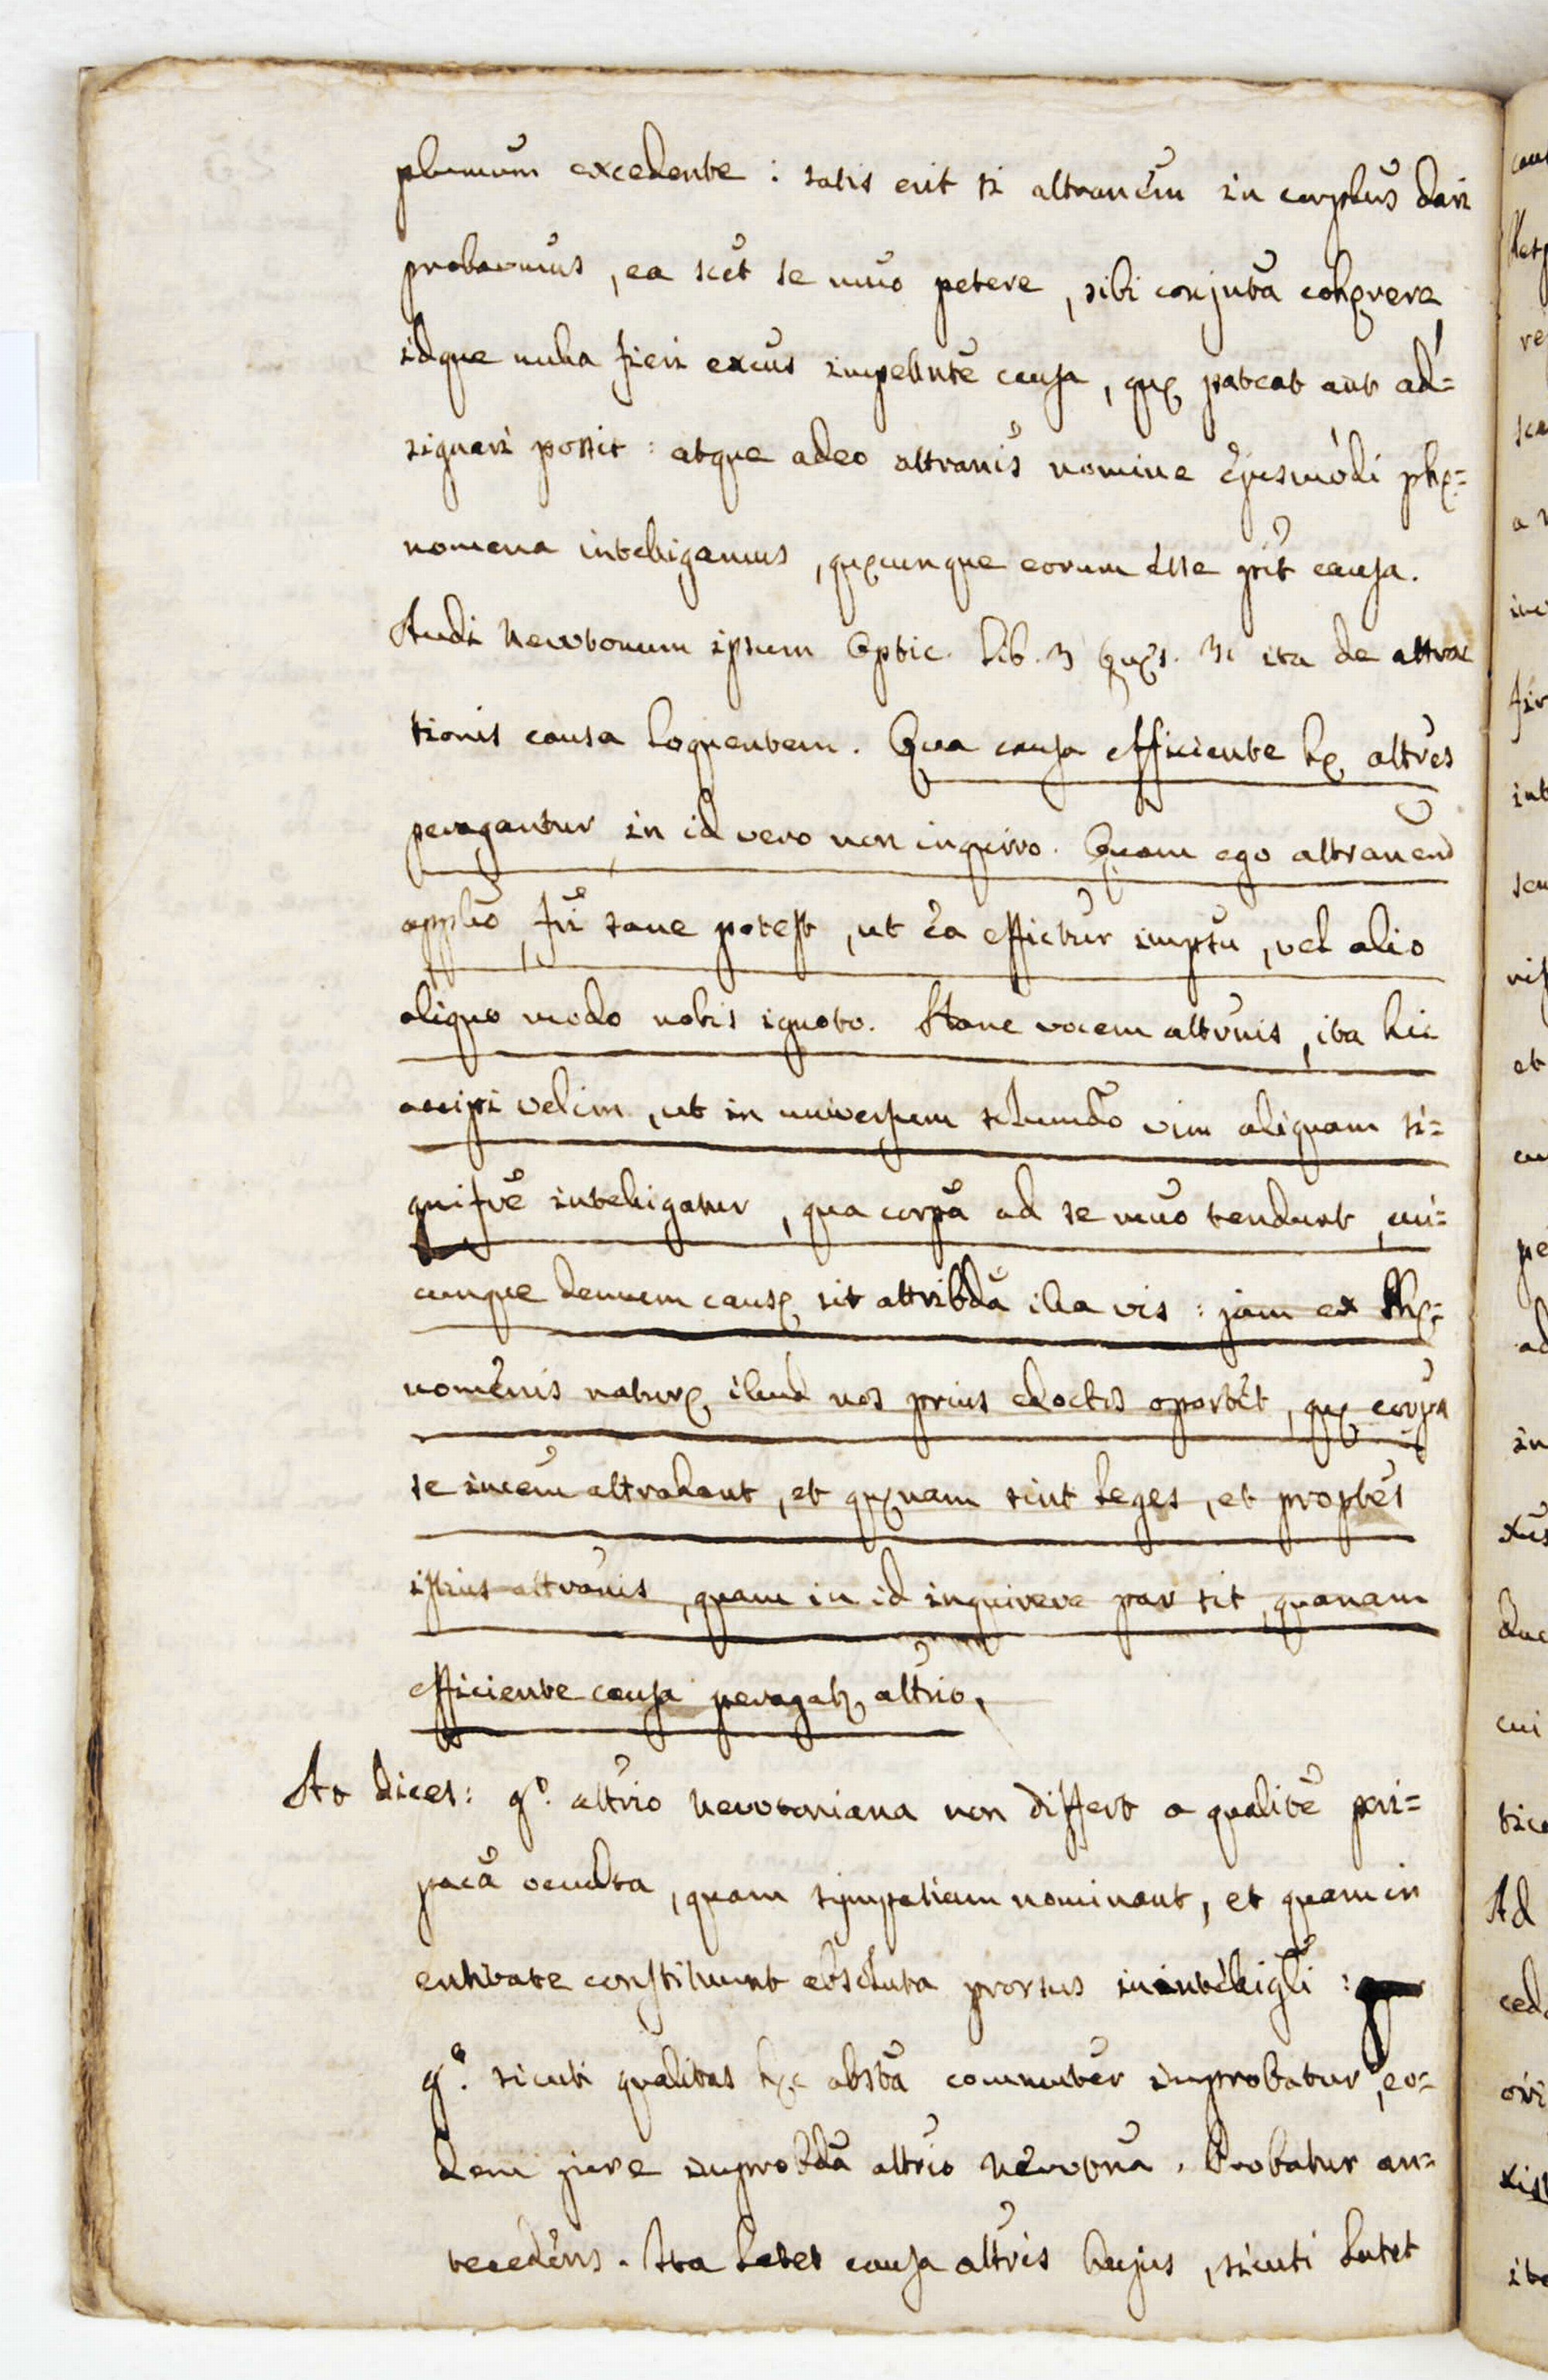 plurimum excedente : satis erit si attranem in corpbus dari
probavimus, ea scet se muo petere, sibi conjuta cohęrere,
idque nulla fieri exus impellnte causa, quę pateat aut ad=
signari possit : atque adeo attranis nomine ejusmodi phę=
nomena intelligamus, quęcunque eorum esse prit causa.
Audi Newtonum ipsum Optic. Lib. 3 Quęs. 31 ita de attrac
tionis causa loquentem. Qua causa efficiente hę attres
peragantur, in id vero non inquiro. Quam ego attranem
appllo, fri sane potest, ut ea effictur impsu, vel alio
aliquo modo nobis ignoto. Hanc vocem attrnis, ita hic
accipi velim, ut in universum solummdo vim aliquam si=
gnifre intelligatur, qua corpa ad se muo tendunt, cui=
cunque demum causę sit attribda illa vis : jam ex Phę=
nomenis naturę illud nos prius edoctos oportet, quę corpa
se incem attrahant, et quęnam sint leges, et proptes
istius attranis, quam in id inquirere par sit, quanam
efficiente causa peragatr attrio.
At dices : go. attrio Newtoniana non differt a qualite peri=
paca occulta, quam sympatiam nominant, et quam in
entitate constituunt absoluta prorsus inintelligli :
go. sicuti qualitas hęc absta communter improbatur, eo=
dem jure improbda attrio Newtna. Probatur an=
tecedens. Ita latet causa attris hujus, sicuti latet